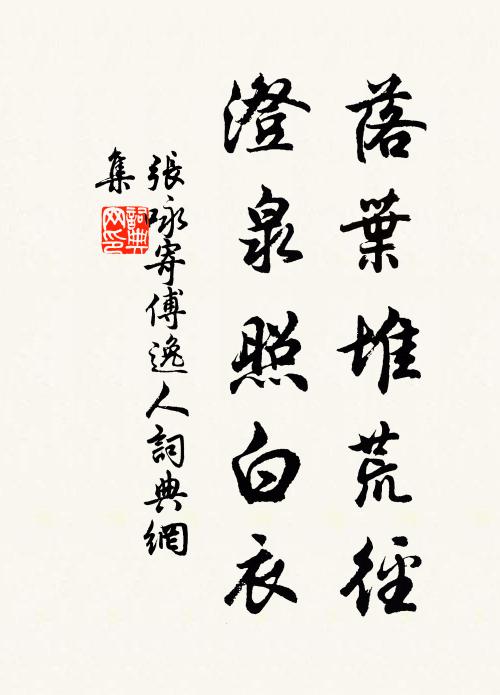 落葉堆荒徑
澄泉照白衣
張咏寄傅逸人詞典網
集
詞典
网印